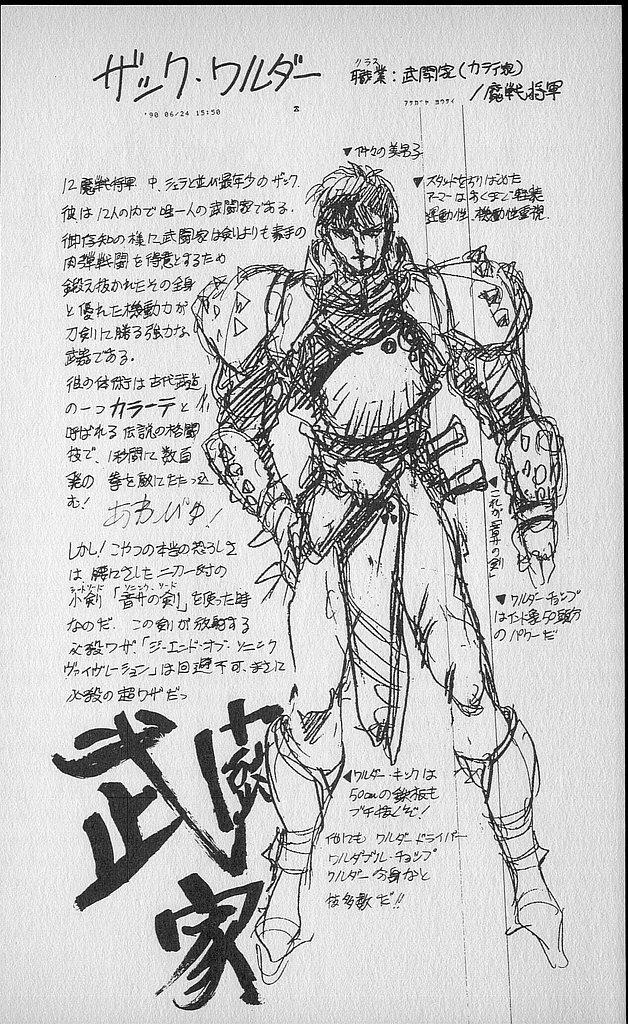 ザック・ワルダー
クラス
職業：武闘家（カラテ家）
／魔戦将軍
'90 06/24 15:50
アサガヤ ヨウサイ
▼作々の美男子
12魔戦将軍 中、シェラと並び最年少のザック
彼は12人の内で唯一人の武闘家である。
御存知の様に武闘家は剣よりも素手の
肉弾戦闘を得意とするため
鍛え抜かれたその全身
と優れた機動力が
刀剣に勝る強力な
武器である。
彼の体術は古代武道
の一つ カラーテ と
呼ばれる 伝説の格闘
技で、1秒間に数百
発の 拳を敵にたたっ込
む！
あわびゅ！
しかし！こやつの本当の恐ろしさ
は 腰にさした二刀一対の
ショートソード ソニック・ソード
小剣 「音界の剣」を使った時
なのだ．この剣が放射する
必殺ワザ「ジ・エンド・オブ・ソニック
ヴァイヴレーション」は回避不可、まさに
必殺の超ワザだっ
▼スタッドをちりばめた
アーマーはあくまで軽装
運動性、機動性重視．
▼これが「音界の剣」
▼ワルダーチョップ
はインド象50頭分
のパワーだ
◀ワルダー・キックは
50cmの鉄板も
ブチ抜くぞ！
他にも ワルダードライバー
ワルダブル・チョップ
ワルダー分身など
技多数だ!!
武闘
家